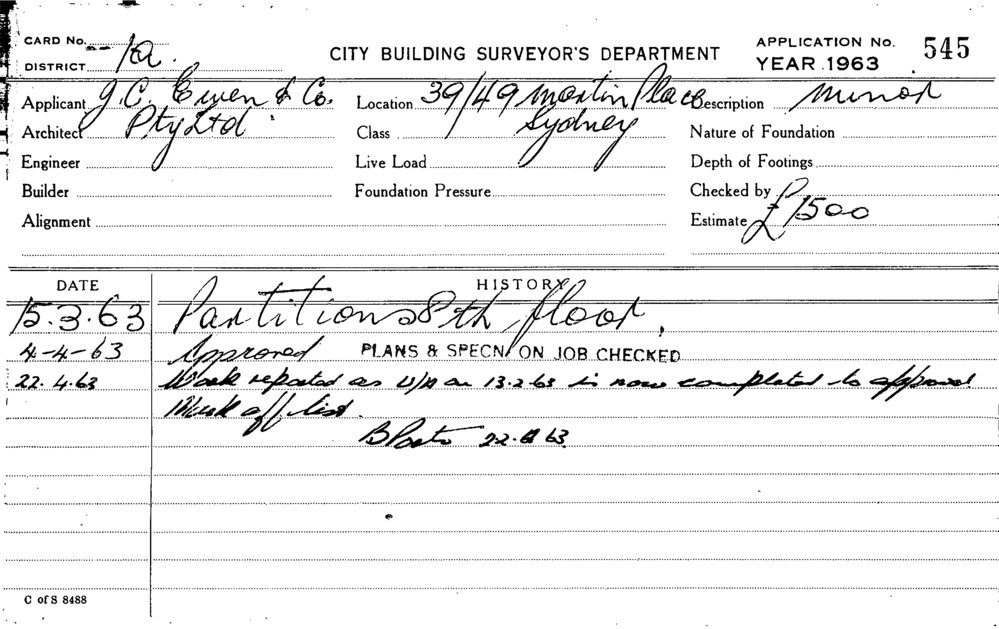 CARD No.
DISTRICT 1a.
CITY BUILDING SURVEYOR'S DEPARTMENT
APPLICATION No. 545
YEAR 1963
Applicant J. C. Ewen & Co.
Location 39/49 Martin Place
Description Minor
Architect Pty Ltd
Class Sydney
Nature of Foundation
Engineer
Live Load
Depth of Footings
Builder
Foundation Pressure
Checked by
Alignment
Estimate £1500
DATE
HISTORY
15.3.63 Partitions 8th floor.
4-4-63 Approved PLANS & SPECN/ ON JOB CHECKED
22.4.63 Work reported as U/A on 13.2.63 is now completed to approval
Mark off list.
22.4.63
C of S 8488